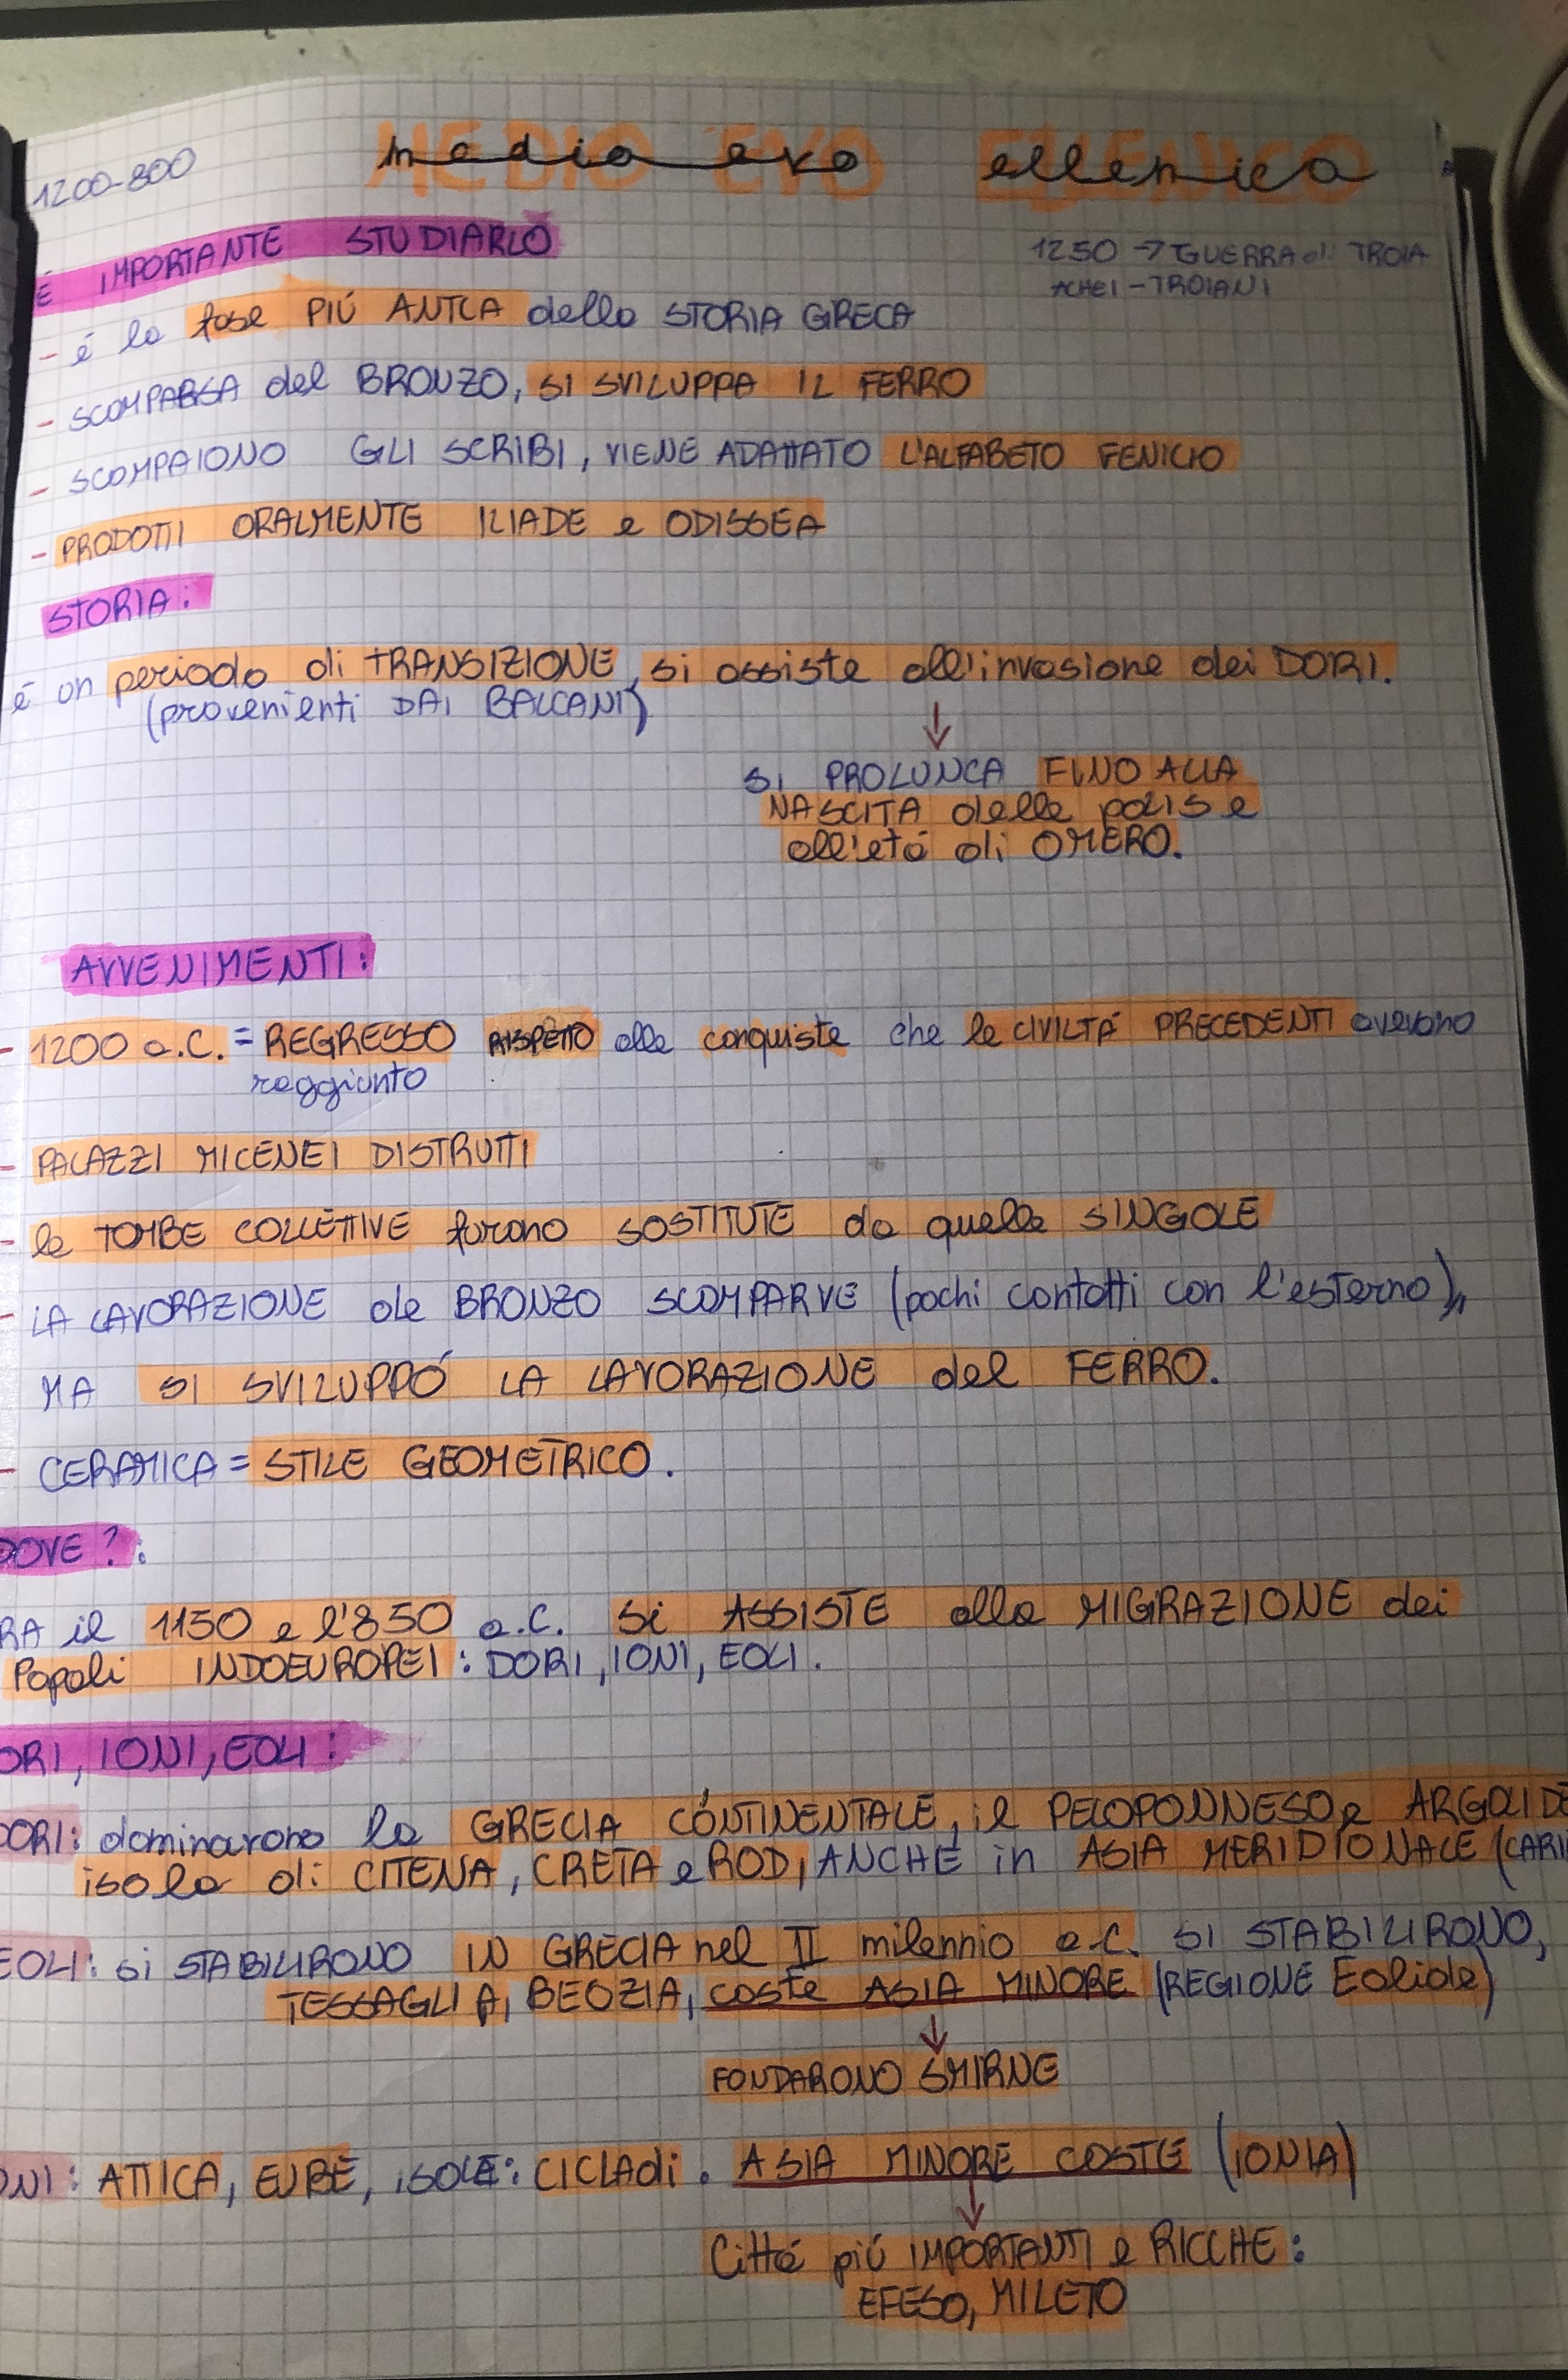 1200-800
medio evo ellenico
É IMPORTANTE STUDIARLO
1250 → GUERRA di TROIA
ACHEI - TROIANI
- é la fase PIÚ ANTCA della STORIA GRECA
- SCOMPARSA del BRONZO, SI SVILUPPA IL FERRO
- SCOMPAIONO GLI SCRIBI, VIENE ADATTATO L'ALFABETO FENICIO
- PRODOTTI ORALMENTE ILIADE e ODISSEA
STORIA:
é un periodo di TRANSIZIONE, si assiste all'invasione dei DORI.
(provenienti DAI BALCANI)
↓
SI PROLUNCA FINO ALLA
NASCITA delle polis e
all'etá di OMERO.
AVVENIMENTI:
- 1200 a.C. = REGRESSO RISPETTO alle conquiste che le CIVILTÁ PRECEDENTI avevano
raggiunto
- PALAZZI MICENEI DISTRUTTI
- le TOMBE COLLETTIVE furono SOSTITUTE da quelle SINGOLE
- LA LAVORAZIONE de BRONZO SCOMPARVE (pochi contatti con l'esterno),
MA SI SVILUPPÓ LA LAVORAZIONE del FERRO.
- CERAMICA = STILE GEOMETRICO.
DOVE?:
RA il 1150 e l'850 a.C. si ASSISTE alla MIGRAZIONE dei
Popoli INDOEUROPEI: DORI, IONI, EOLI.
ORI, IONI, EOLI:
DORI: dominarono la GRECIA CONTINENTALE, il PELOPONNESO e ARGOLIDE
isola di CITENA, CRETA e RODI, ANCHE in ASIA MERIDIONALE (CARI
EOLI: si STABILIRONO IN GRECIA nel II milennio a.C. SI STABILIRONO,
TESSAGLIA, BEOZIA, coste ASIA MINORE (REGIONE Eolide)
↓
FONDARONO SMIRNE
ONI: ATTICA, EUBE, isole: CICLADI. ASIA MINORE COSTE (IONIA)
↓
Cittá piú IMPORTANTI e RICCHE:
EFESO, MILETO